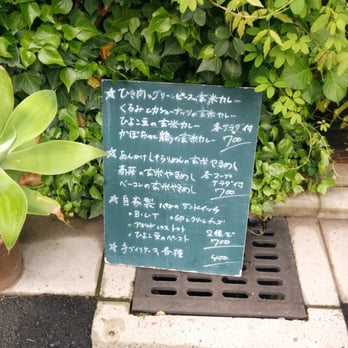 ★ひき肉とグリーンピースの玄米カレー
くるみとカシューナッツの玄米カレー
ひよこ豆の玄米カレー 各サラダ付
かぼちゃと鶏の玄米カレー 700
★あんかけしらすの玄米やきめし
高菜の玄米やきめし 各スープ
ベーコンの玄米やきめし サラダ付
700
★自家製 パンのサンドイッチ
・B・L・T
2種で
・ひよこ豆のペースト 700
★手づくりケーキ 各種 400